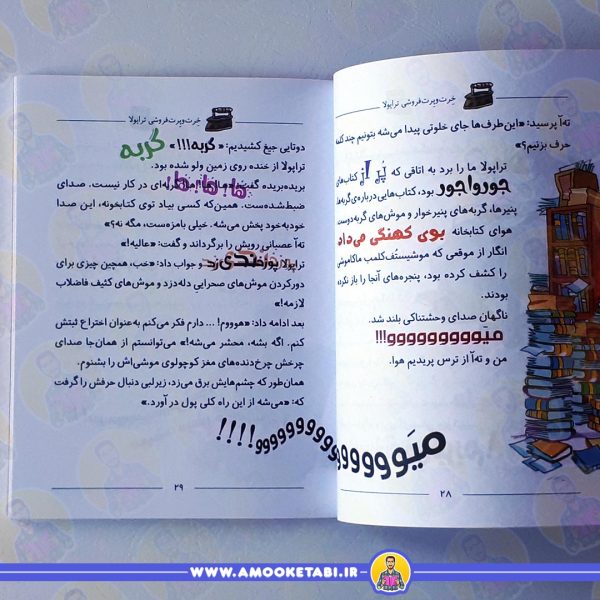 خِرت‌وپرت‌فروشی تراپولا
ته‌آ پرسید: «این‌طرف‌ها جای خلوتی پیدا می‌شه بتونیم چند کلمه
حرف بزنیم؟»
تراپولا ما را برد به اتاقی که پُر از کتاب‌های
جورواجور بود، کتاب‌هایی درباره‌ی گربه‌ها
پنیرها، گربه‌های پنیرخوار و موش‌های گربه‌دوست
هوای کتابخانه بوی کهنگی می‌داد
انگار از موقعی که موشیستُف‌کلمب ماکاموشی
را کشف کرده بود، پنجره‌های آنجا را باز نکرده
بودند.
ناگهان صدای وحشتناکی بلند شد.
میَوووووووووو!!!
من و ته‌آ از ترس پریدیم هوا.
میَوووووووووووووووو!!!!
۲۸
خِرت‌وپرت‌فروشی تراپولا
دوتایی جیغ کشیدیم: «گربه!!!» گربه
تراپولا از خنده روی زمین ولو شده بود.
بریده‌بریده گفت: «ها! ها! ها! گربه‌ای در کار نیست. صدای
ضبط‌شده‌ست. همین‌که کسی بیاد توی کتابخونه، این صدا
خودبه‌خود پخش می‌شه. خیلی بامزه‌ست، مگه نه؟»
ته‌آ عصبانی رویش را برگرداند و گفت: «عالیه!»
تراپولا پوزخندی زد و جواب داد: «خب، همچین چیزی برای
دورکردن موش‌های صحراییِ دله‌دزد و موش‌های کثیف فاضلاب
لازمه!»
بعد ادامه داد: «هوووم! ... دارم فکر می‌کنم به‌عنوان اختراع ثبتش
کنم. اگه بشه، محشر می‌شه!» می‌توانستم از همان‌جا صدای
چرخش چرخ‌دنده‌های مغز کوچولوی موشی‌اش را بشنوم.
همان‌طور که چشم‌هایش برق می‌زد، زیرلبی دنبال حرفش را گرفت
که: «می‌شه از این راه کلی پول در آورد.»
۲۹
WWW.AMOOKETABI.IR